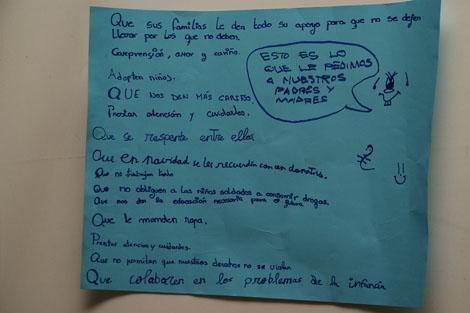 Que sus familias le den todo su apoyo para que no se dejen
llevar por los que no deben.
Comprención, amor y cariño.
Adopten niños.
QUE NOS DEN MÁS CARIÑO.
Prestar atención y cuidados.
Que se respeten entre ellos
Que en navidad se les recuerdin con un donativo.
Que no trabajen todo
Que no obliguen a los niños soldados a consumir drogas.
Que nos den la educación necesaria para el futuro
Que le manden ropa.
Prestar atencion y cuidados.
Que no permitan que nuestros derechos no se violen
Que colaboren en los problemas de la infancia
ESTO ES LO
QUE LE PEDIMOS
A NUESTROS
PADRES Y
MADRES